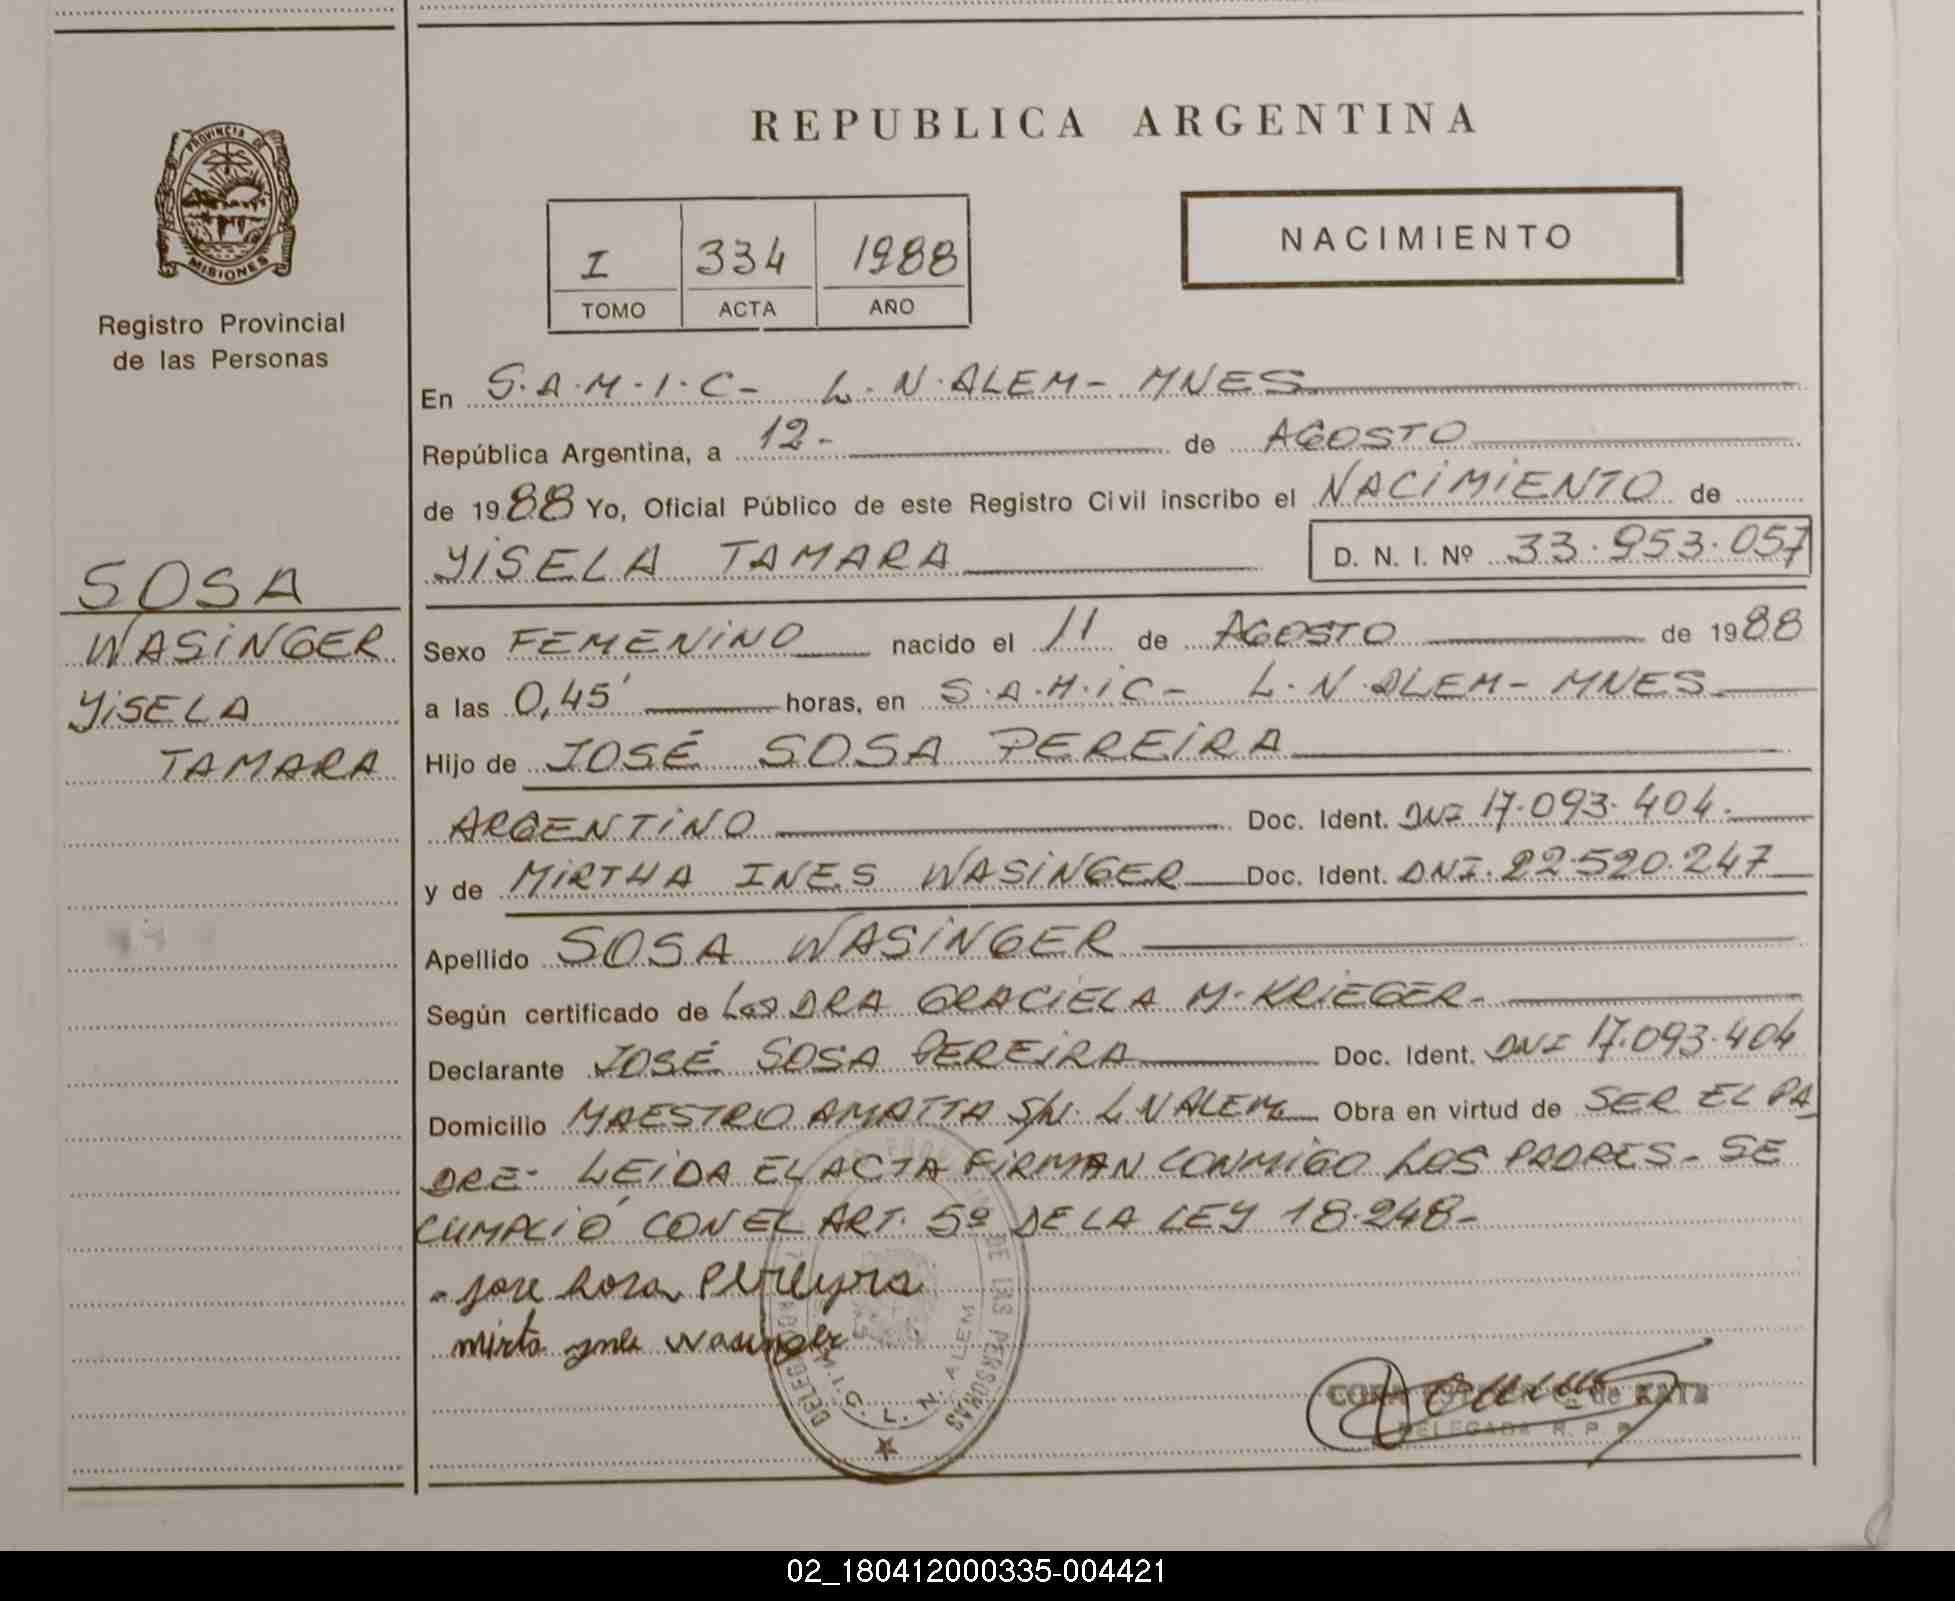 PROVINCIA DE
MISIONES
Registro Provincial
de las Personas
SOSA
WASiNGER
YiSELA
TAMARA
REPUBLICA ARGENTINA
I 334 1988
TOMO ACTA AÑO
NACIMIENTO
En S.A.M.I.C- L.N.ALEM- MNES
República Argentina, a 12- de AGOSTO
de 1988 Yo, Oficial Público de este Registro Civil inscribo el NACiMiENTO de
YiSELA TAMARA D. N. I. Nº 33.953.057
Sexo FEMENiNO nacido el 11 de AGOSTO de 1988
a las 0,45' horas, en S.A.M.iC- L.N.ALEM- MNES
Hijo de JOSÉ SOSA PEREiRA
ARGENTiNO Doc. Ident. DNI 17.093.404.
y de MiRTHA INES WASiNGER Doc. Ident. DNI. 22.520.247
Apellido SOSA WASiNGER
Según certificado de DRA GRACiELA M. KRiEGER-
Declarante JOSÉ SOSA PEREiRA Doc. Ident. DNI 17.093.404
Domicilio MAESTRO AMATTA S/N. L N ALEM Obra en virtud de SER EL PA
DRE- LEiDA EL ACTA FiRMAN CONMiGO LOS PADRES- SE
CUMPLiÓ CON EL ART. 5º DE LA LEY 18.248-
jose sosa Pereyra
mirta ines wasinger
DE LAS PERSONAS
L. N. ALEM
DELEGADA R. P. P.
02_180412000335-004421